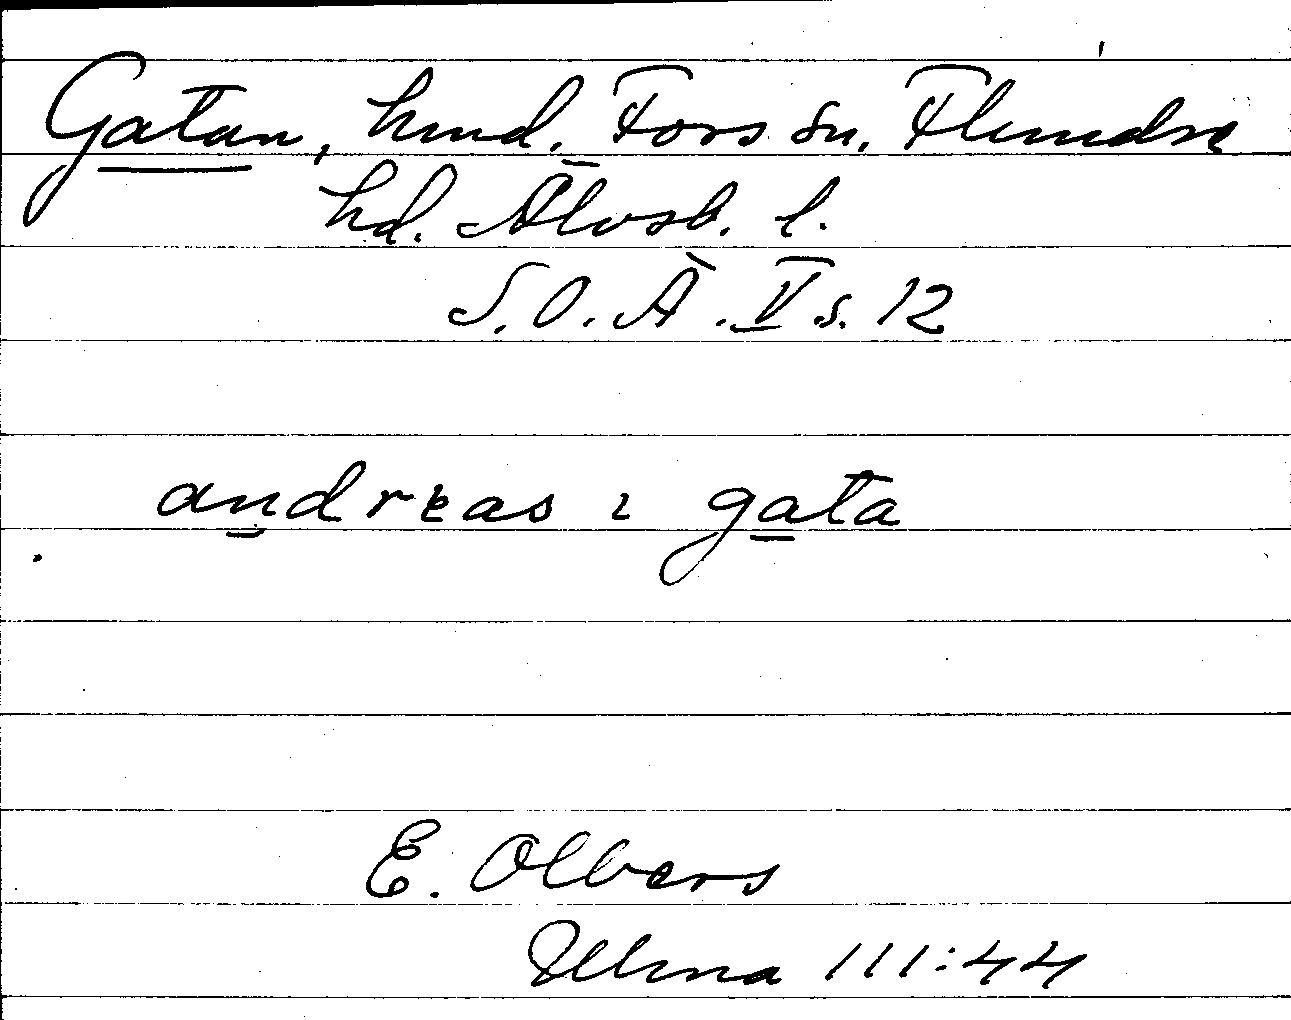 Gatan, hmd. Fors sn. Flundre
hd. Älvsb. l.
S.O.Ä. V s. 12
andreas ı gata
E. Olbers
Ulma 111:44